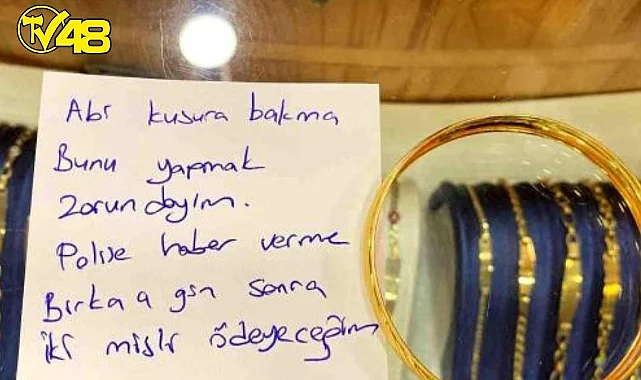 TV48
Abi kusura bakma
Bunu yapmak
zorundayım.
Polise haber verme
Birkaa gün sonra
iki misli ödeyeceğim